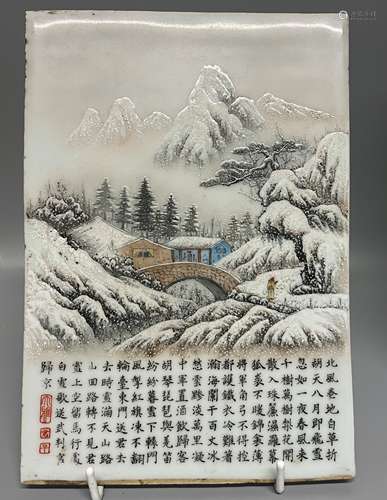 北風卷地白草折
胡天八月即飛雪
忽如一夜春風來
千樹萬樹梨花開
散入珠簾濕羅幕
狐裘不暖錦衾薄
將軍角弓不得控
都護鐵衣冷難著
瀚海闌干百丈冰
愁雲黲淡萬里凝
中軍置酒飲歸客
胡琴琵琶與羌笛
紛紛暮雪下轅門
風掣紅旗凍不翻
輪臺東門送君去
去時雪滿天山路
山回路轉不見君
雪上空留馬行處
白雪歌送武判官
歸京